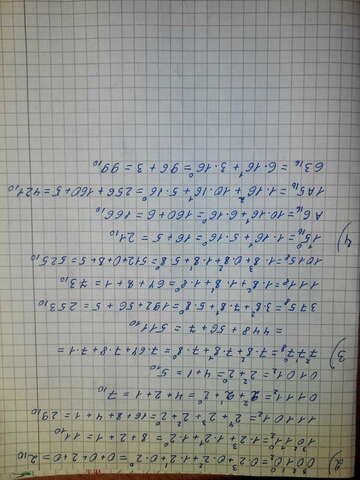 2) 0010₂ = 0·2³+0·2²+1·2¹+0·2⁰ = 0+0+2+0 = 2₁₀
1011₂ = 1·2³+1·2¹+1·2⁰ = 8+2+1 = 11₁₀
11101₂ = 2⁴+2³+2²+2⁰ = 16+8+4+1 = 29₁₀
0111₂ = 2²+2¹+2⁰ = 4+2+1 = 7₁₀
0101₂ = 2²+2⁰ = 4+1 = 5₁₀
3) 777₈ = 7·8²+7·8¹+7·8⁰ = 7·64+7·8+7·1 =
= 448+56+7 = 511₁₀
375₈ = 3·8²+7·8¹+5·8⁰ = 192+56+5 = 253₁₀
111₈ = 1·8²+1·8¹+1·8⁰ = 64+8+1 = 73₁₀
1015₈ = 1·8³+0·8²+1·8¹+5·8⁰ = 512+0+8+5 = 525₁₀
4) 15₁₆ = 1·16¹+5·16⁰ = 16+5 = 21₁₀
A6₁₆ = 10·16¹+6·16⁰ = 160+6 = 166₁₀
1A5₁₆ = 1·16²+10·16¹+5·16⁰ = 256+160+5 = 421₁₀
63₁₆ = 6·16¹+3·16⁰ = 96+3 = 99₁₀